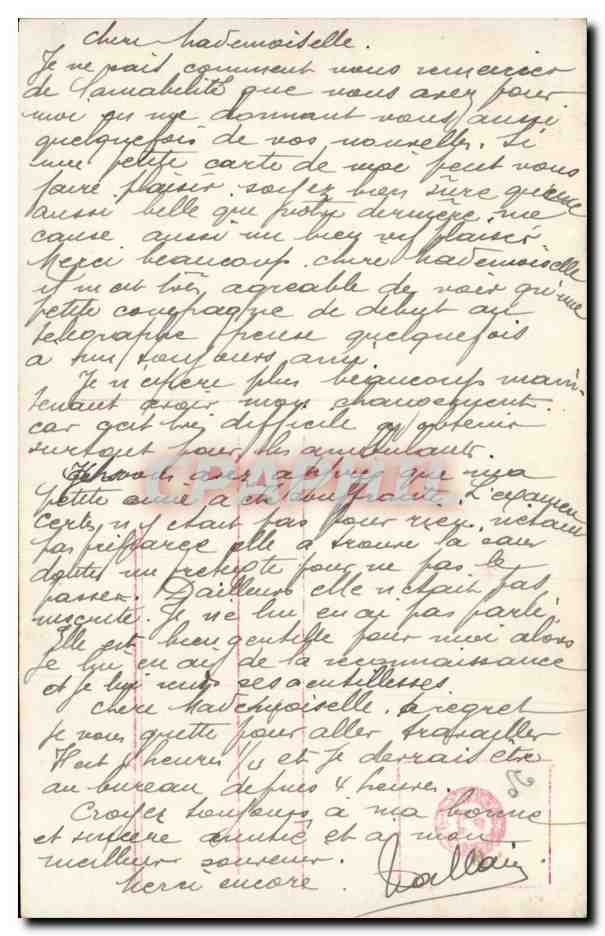 Chère Mademoiselle.
Je ne sais comment vous remercier
de l'amabilité que vous avez pour
moi en me donnant vous aussi
quelquefois de vos nouvelles. Si
une petite carte de moi peut vous
faire plaisir. soyez bien sûre qu'une
aussi belle que votre dernière me
cause aussi un bien vif plaisir
Merci beaucoup chère Mademoiselle
il m'est très agréable de voir qu'une
petite compagne de début au
télégraphe pense quelquefois
à son toujours ami.
Je n'espère plus beaucoup main-
tenant avoir mon changement
car c'est très difficile à obtenir
surtout pour les ambulants.
vous avez appris que ma
petite amie a été souffrante. L'examen
certes n'y était pas pour rien, n'étant
pas préparée elle a trouvé là sans
doute un prétexte pour ne pas le
passer. D'ailleurs elle n'était pas
inscrite. Je ne lui en ai pas parlé
Elle est bien gentille pour moi alors
je lui en ai de la reconnaissance
et je lui rends ses gentillesses
Chère Mademoiselle. à regret
je vous quitte pour aller travailler
Il est 4 heures 1/4 et je devrais être
au bureau depuis 4 heures.
Croyez toujours à ma bonne
et sincère amitié et à mon
meilleur souvenir.
Merci encore
CPAPHIL